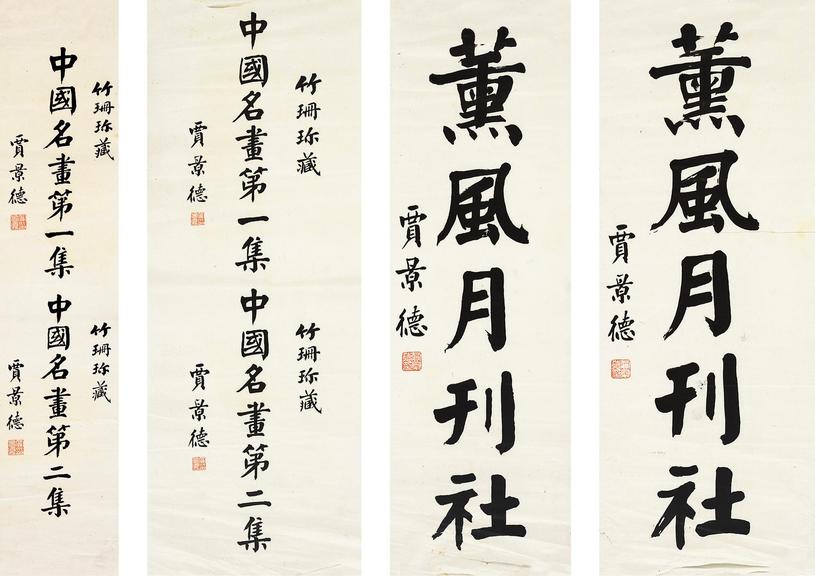 薰風月刊社
賈景德
薰風月刊社
賈景德
竹珊珎藏
中國名畫第一集
賈景德
竹珊珎藏
中國名畫第二集
賈景德
竹珊珎藏
中國名畫第一集
賈景德
竹珊珎藏
中國名畫第二集
賈景德